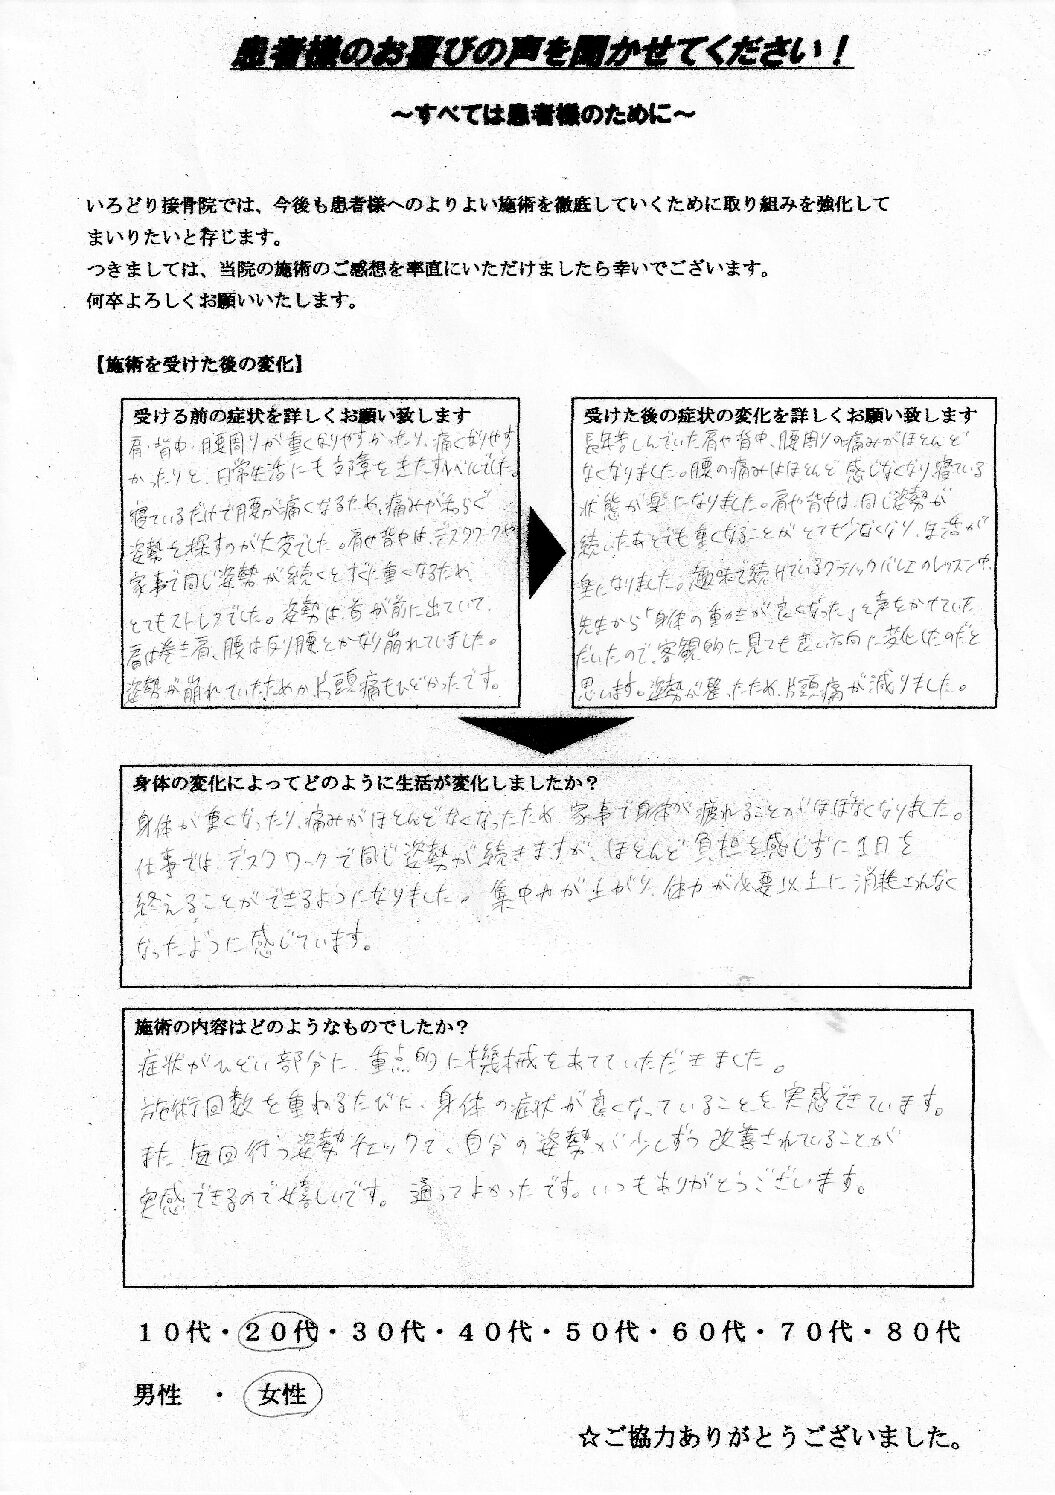 患者様のお喜びの声を聞かせてください！
～すべては患者様のために～
いろどり接骨院では、今後も患者様へのよりよい施術を徹底していくために取り組みを強化して
まいりたいと存じます。
つきましては、当院の施術のご感想を率直にいただけましたら幸いでございます。
何卒よろしくお願いいたします。
【施術を受けた後の変化】
受ける前の症状を詳しくお願い致します
肩・背中・腰周りが重くなりやすかったり、痛くなりやす
かったりと、日常生活にも支障をきたすレベルでした。
寝ているだけで腰が痛くなるため、痛みが和らぐ
姿勢を探すのが大変でした。肩や背中は、デスクワークや
家事で同じ姿勢が続くとすぐに重くなるため、
とてもストレスでした。姿勢は、首が前に出ていて、
肩は巻き肩、腰は反り腰とかなり崩れていました。
姿勢が崩れていたためか、片頭痛もひどかったです。
受けた後の症状の変化を詳しくお願い致します
長年苦しんでいた肩や背中、腰周りの痛みがほとんど
なくなりました。腰の痛みはほとんど感じなくなり、寝ている
状態が楽になりました。肩や背中は、同じ姿勢が
続いたあとでも重くなることがとても少なくなり、生活が
楽になりました。趣味で続けているクラシックバレエのレッスン中、
先生から「身体の動きが良くなった」と声をかけていた
だいたので、客観的に見ても良い方向に変化したのだと
思います。姿勢が整ったため、片頭痛が減りました。
身体の変化によってどのように生活が変化しましたか？
身体が重くなったり、痛みがほとんどなくなったため、家事で身体が疲れることがほぼなくなりました。
仕事では、デスクワークで同じ姿勢が続きますが、ほとんど負担を感じずに1日を
終えることができるようになりました。集中力が上がり、体力が必要以上に消耗されなく
なったように感じています。
施術の内容はどのようなものでしたか？
症状がひどい部分に、重点的に機械をあてていただきました。
施術回数を重ねるたびに、身体の症状が良くなっていることを実感できています。
また、毎回行う姿勢チェックで、自分の姿勢が少しずつ改善されていることが
実感できるので嬉しいです。通ってよかったです。いつもありがとうございます。
１０代・２０代・３０代・４０代・５０代・６０代・７０代・８０代
男性　・　女性
☆ご協力ありがとうございました。